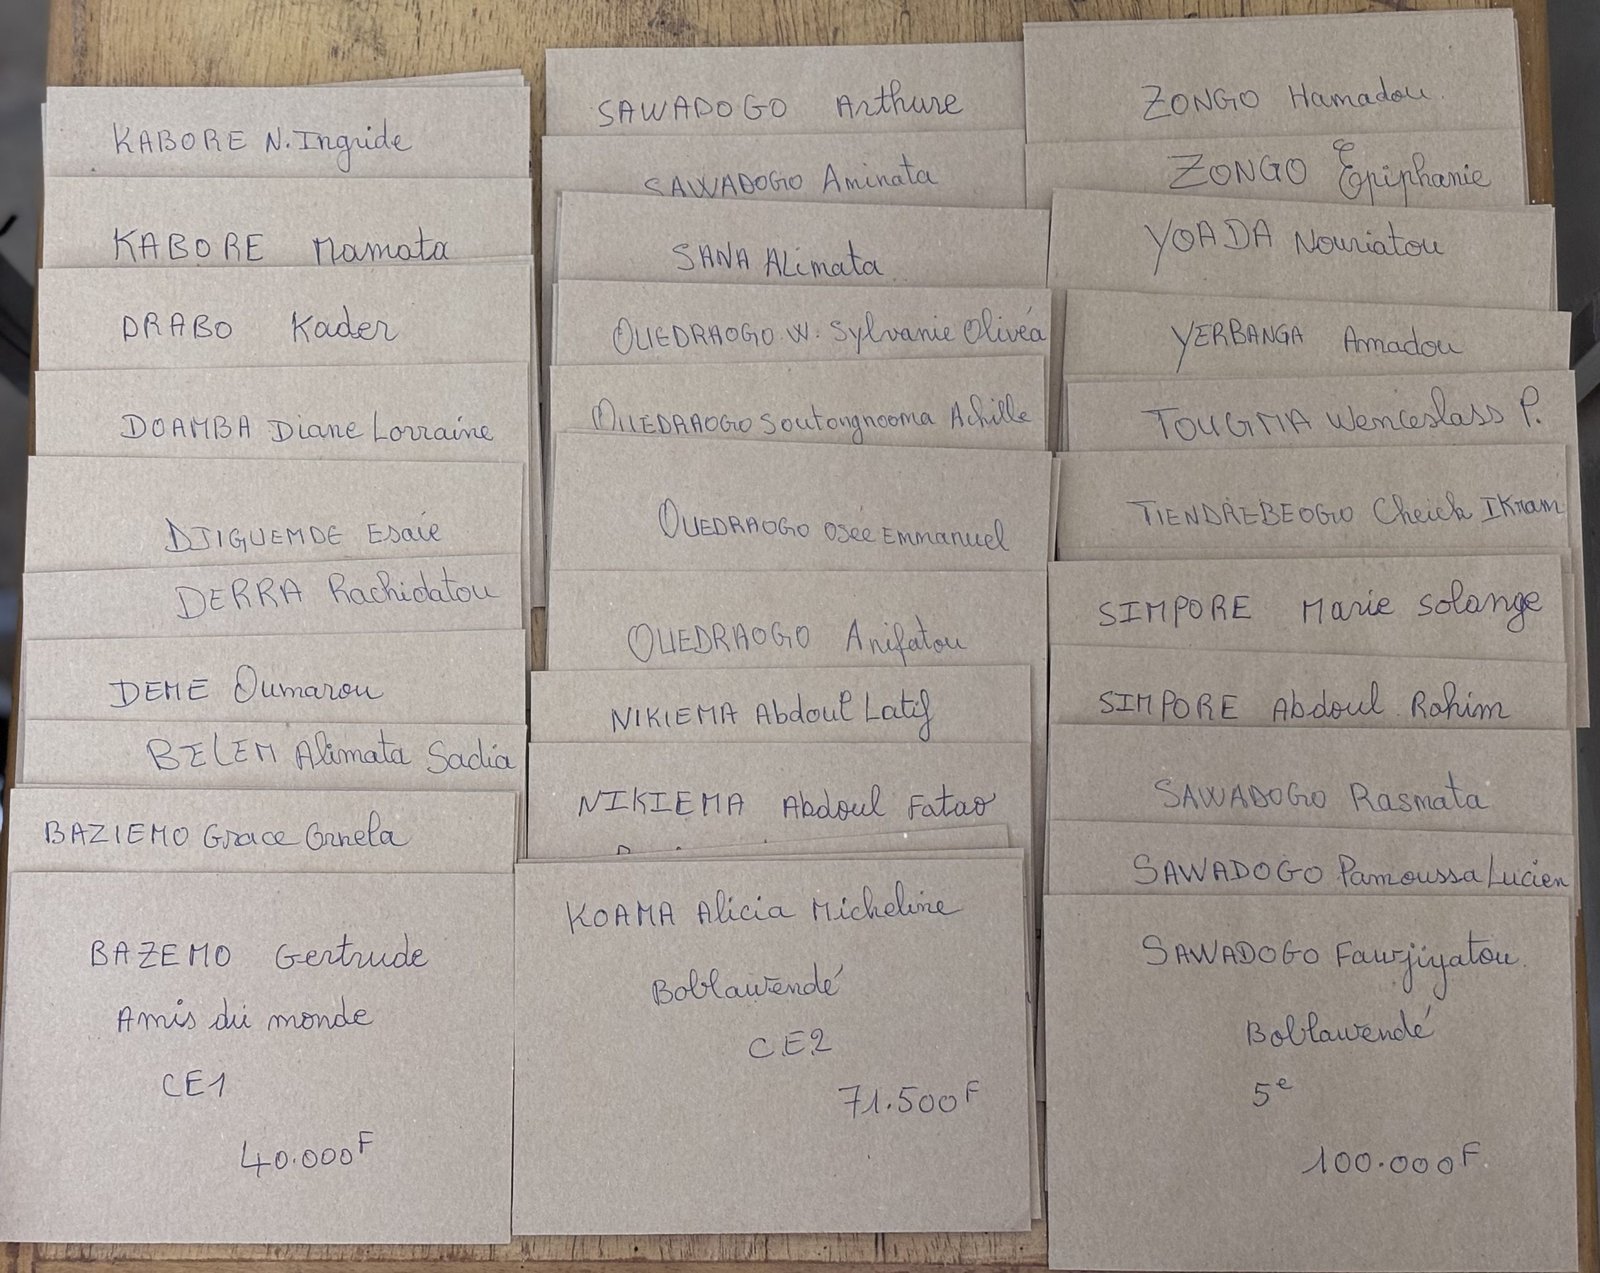 KABORE N. Ingride
KABORE Mamata
DRABO Kader
DOAMBA Diane Lorraine
DJIGUEMDE Esaïe
DERRA Rachidatou
DEME Oumarou
BELEM Alimata Sadia
BAZIEMO Grace Ornela
BAZEMO Gertrude
Amis du monde
CE1
40.000F
SAWADOGO Arthure
SAWADOGO Aminata
SANA Alimata
OUEDRAOGO W. Sylvanie Olivéa
OUEDRAOGO Soutongnooma Achille
OUEDRAOGO Osée Emmanuel
OUEDRAOGO Anifatou
NIKIEMA Abdoul Latif
NIKIEMA Abdoul Fatao
KOAMA Alicia Micheline
Boblawendé
CE2
71.500F
ZONGO Hamadou.
ZONGO Epiphanie
YOADA Nouriatou
YERBANGA Amadou
TOUGMA Wenceslass P.
TIENDREBEOGO Cheick IKram
SIMPORE Marie Solange
SIMPORE Abdoul Rahim
SAWADOGO Rasmata
SAWADOGO Pamoussa Lucien
SAWADOGO Fawjiyatou.
Boblawendé
5e
100.000F